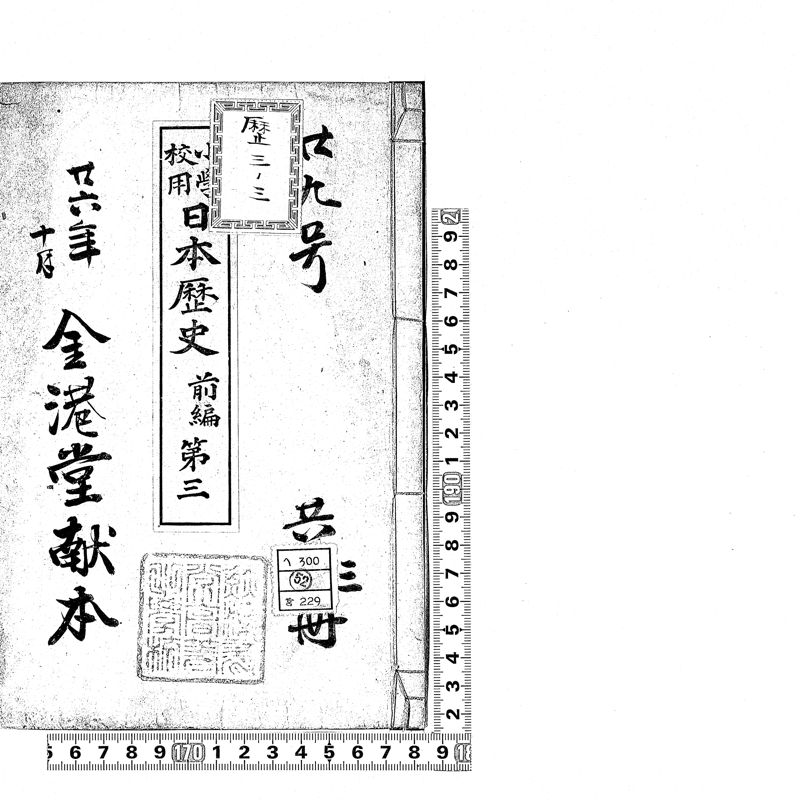 廿九号
共三冊
歴三ノ三
小学校用
日本歴史 前編 第三
廿六年
十月
金港堂献本
ヘ 300
52
宮 229
2 3 4 5 6 7 8 9 190 1 2 3 4 5 6 7 8 9 2
5 6 7 8 9 170 1 2 3 4 5 6 7 8 9 18